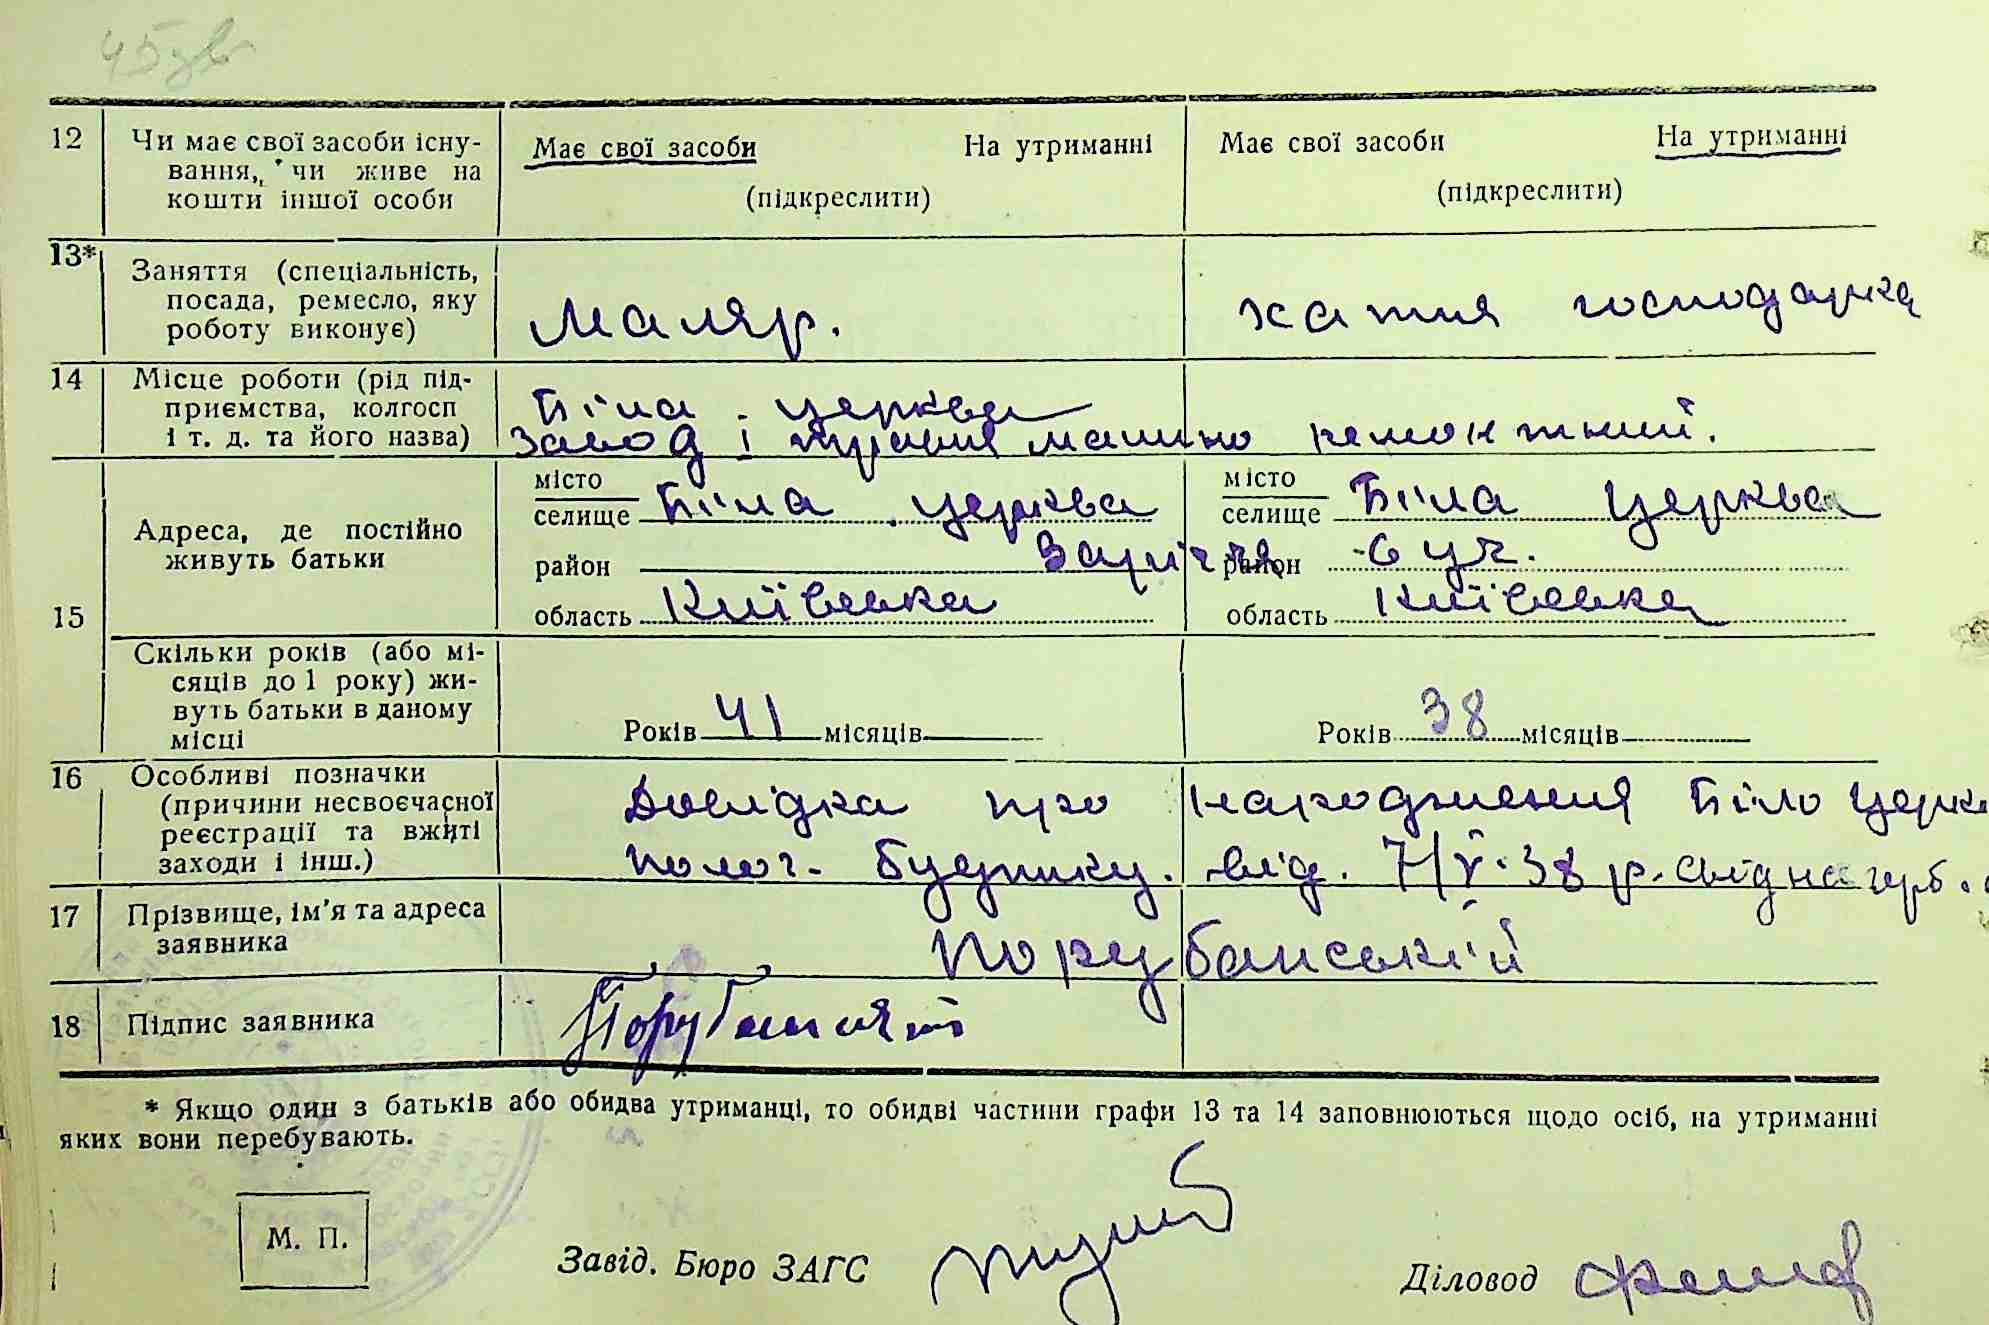 12 Чи має свої засоби існу-
вання, чи живе на
кошти іншої особи
Має свої засоби На утриманні
(підкреслити)
Має свої засоби На утриманні
(підкреслити)
13* Заняття (спеціальність,
посада, ремесло, яку
роботу виконує)
Маляр.
хатня господарка
14 Місце роботи (рід під-
приємства, колгосп
і т. д. та його назва)
Біла церква
завод і машино ремонтний.
15 Адреса, де постійно
живуть батьки
місто
селище Біла церква
район Заріччя
область Київська
місто
селище Біла Церква
район 6 уч.
область Київська
Скільки років (або мі-
сяців до 1 року) жи-
вуть батьки в даному
місці
Років 41 місяців
Років 38 місяців
16 Особливі позначки
(причини несвоєчасної
реєстрації та вжиті
заходи і інш.)
Довідка про народження Біло церк
полог. будинку. від. 7/V.38 р.
17 Прізвище, ім'я та адреса
заявника
Порубанській
18 Підпис заявника
* Якщо один з батьків або обидва утриманці, то обидві частини графи 13 та 14 заповнюються щодо осіб, на утриманні
яких вони перебувають.
М. П.
Завід. Бюро ЗАГС
Діловод